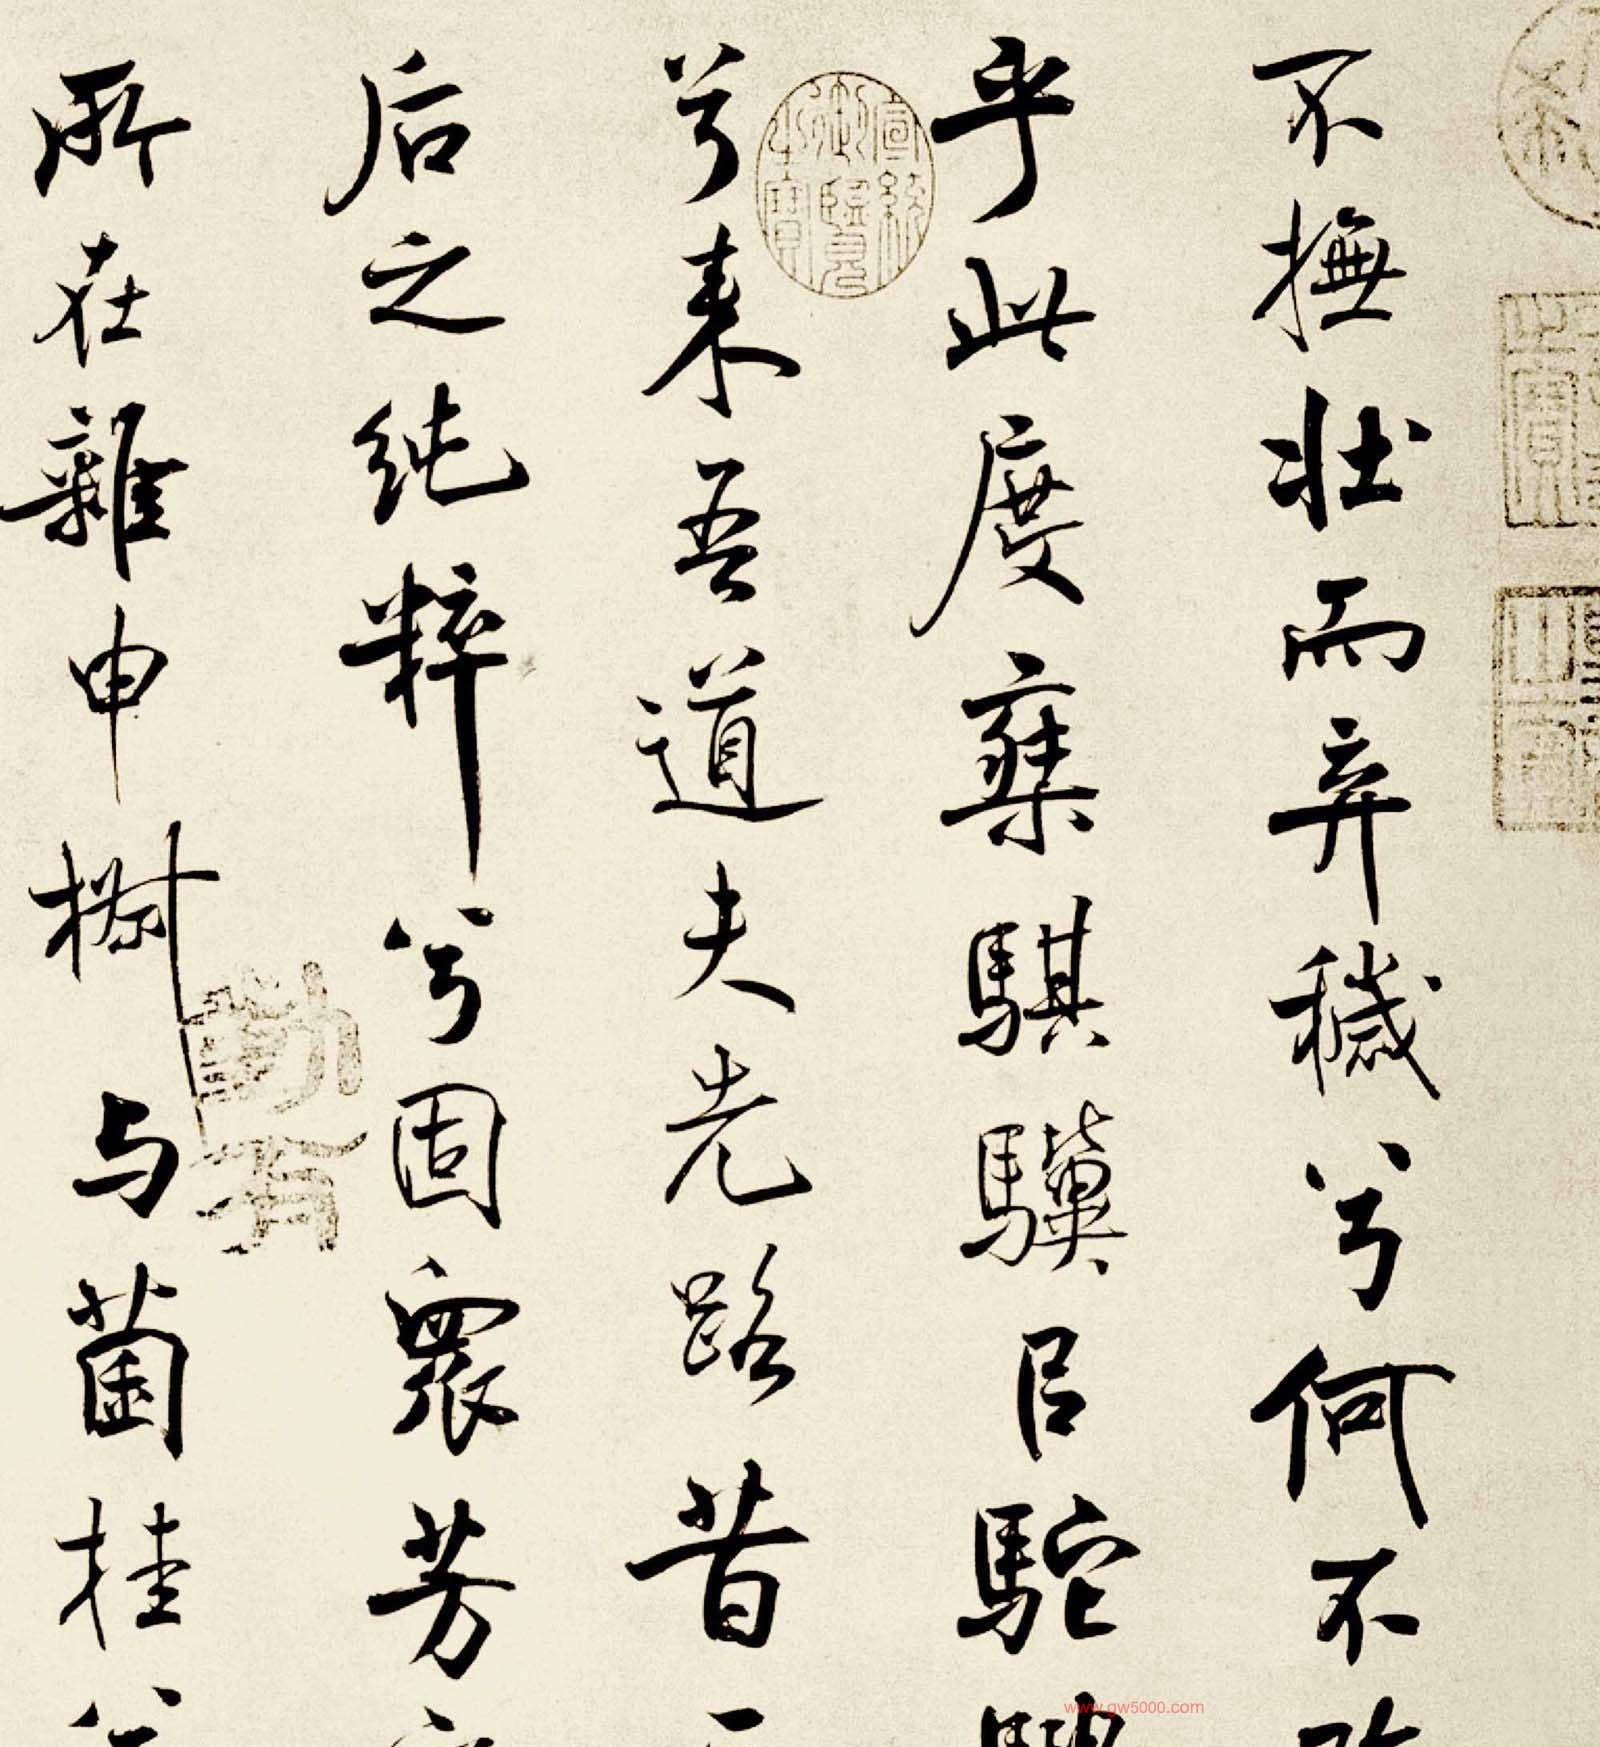 不撫壯而弃穢兮何不改
乎此度椉騏驥㠯駝騁
兮来吾道夫先路昔三
后之純粹兮固衆芳之
所在雜申椒与菌桂兮
宣統御覽之寶
www.gw5000.com